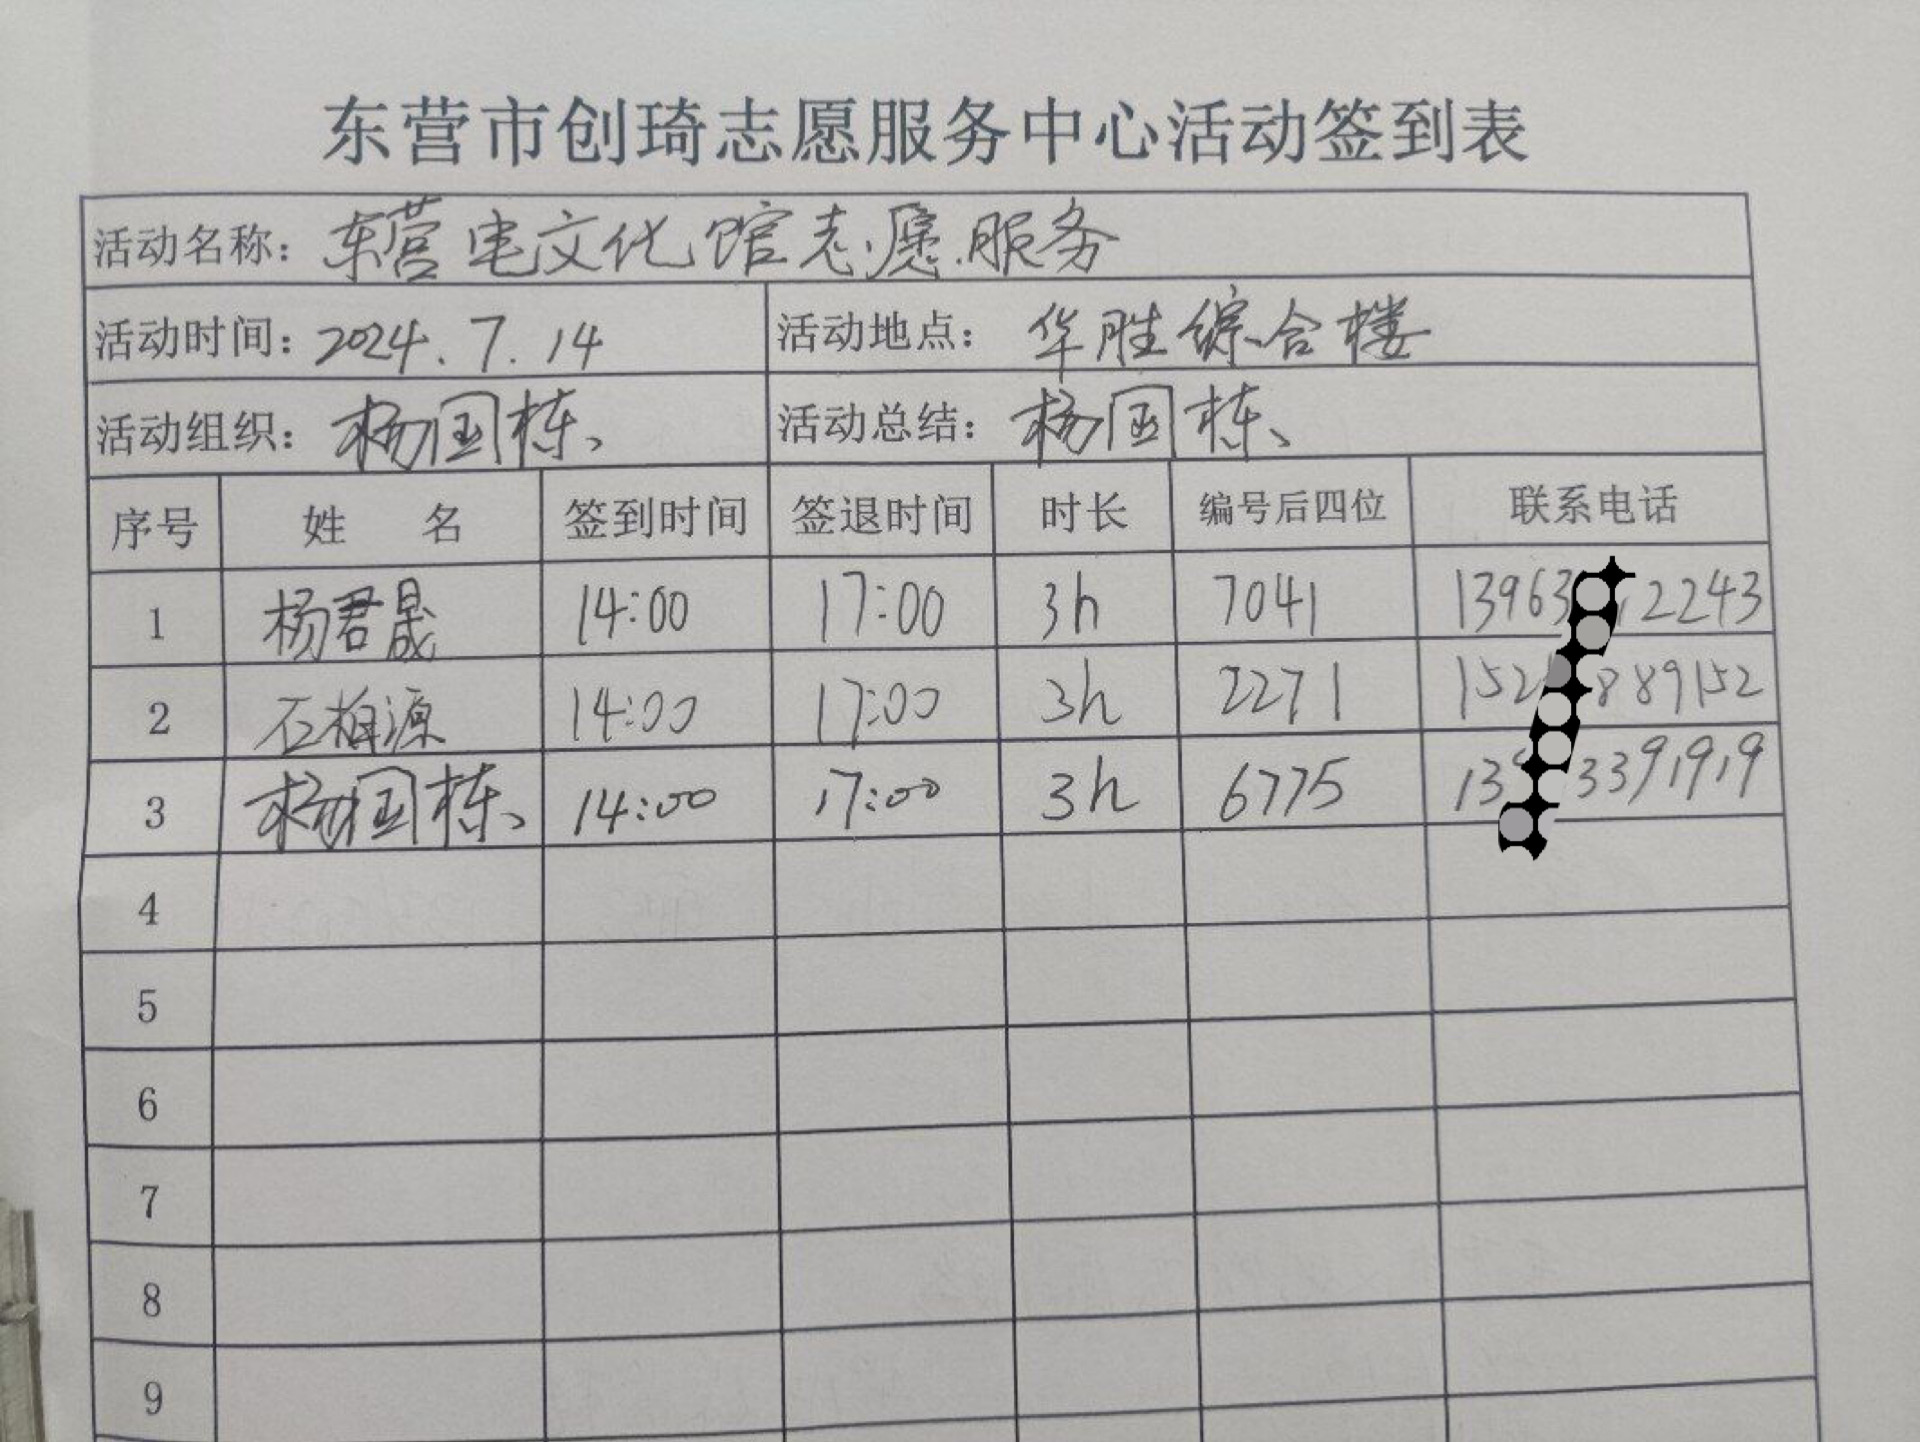 东营市创琦志愿服务中心活动签到表
活动名称：东营电文化馆志愿服务
活动时间：2024.7.14 活动地点：华胜综合楼
活动组织：杨国栋 活动总结：杨国栋
序号 姓名 签到时间 签退时间 时长 编号后四位 联系电话
1 杨君晟 14:00 17:00 3h 7041 13963 2243
2 石柏源 14:00 17:00 3h 2271 152 889152
3 杨国栋 14:00 17:00 3h 6775 13 3391919
4
5
6
7
8
9